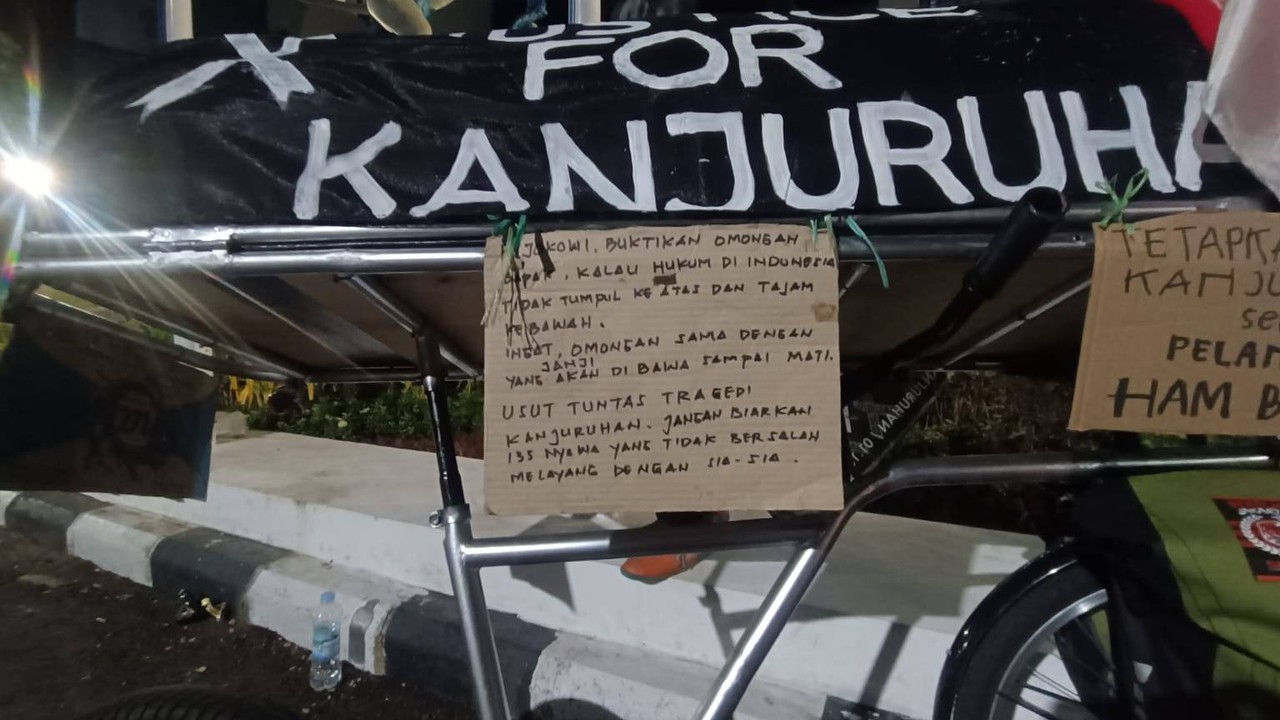 FOR
KANJURUHA
JOKOWI. BUKTIKAN OMONGAN
BAPAK, KALAU HUKUM DI INDONESIA
TIDAK TUMPUL KE ATAS DAN TAJAM
KEBAWAH.
INGAT, OMONGAN SAMA DENGAN
JANJI
YANG AKAN DI BAWA SAMPAI MATI.
USUT TUNTAS TRAGEDI
KANJURUHAN. JANGAN BIARKAN
135 NYAWA YANG TIDAK BERSALAH
MELAYANG DENGAN SIA-SIA.
TETAPKA
KANJU
se
PELAN
HAM B